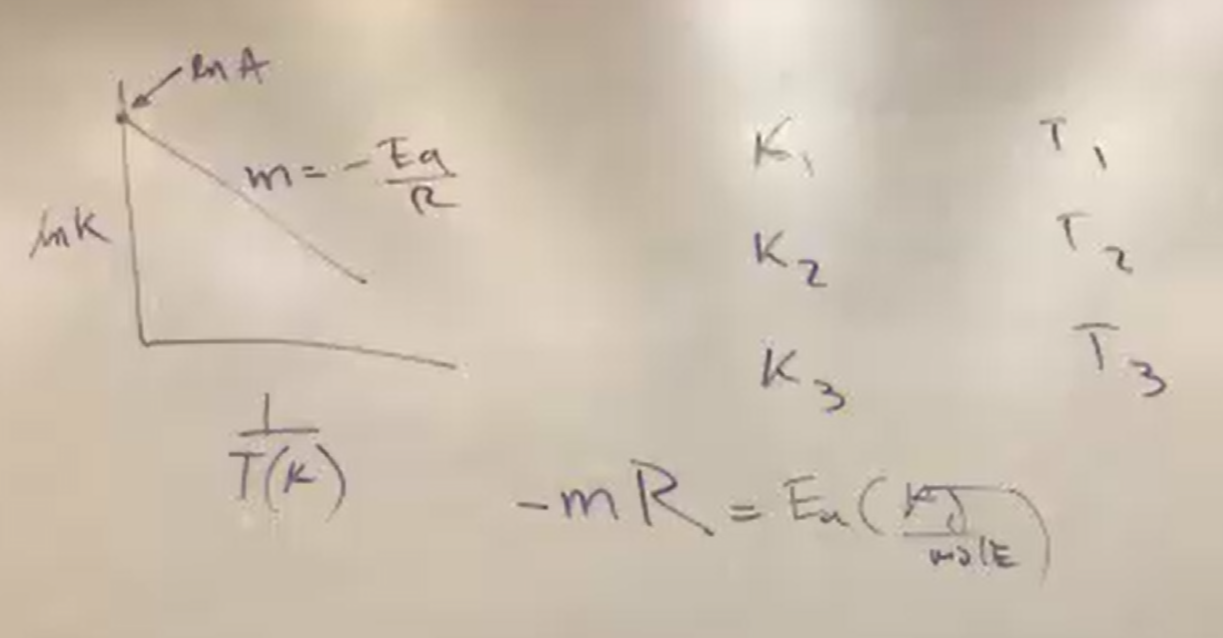 ln A
m = - Ea/R
ln K
1/T(K)
K1 T1
K2 T2
K3 T3
-mR = Ea (KJ/molE)